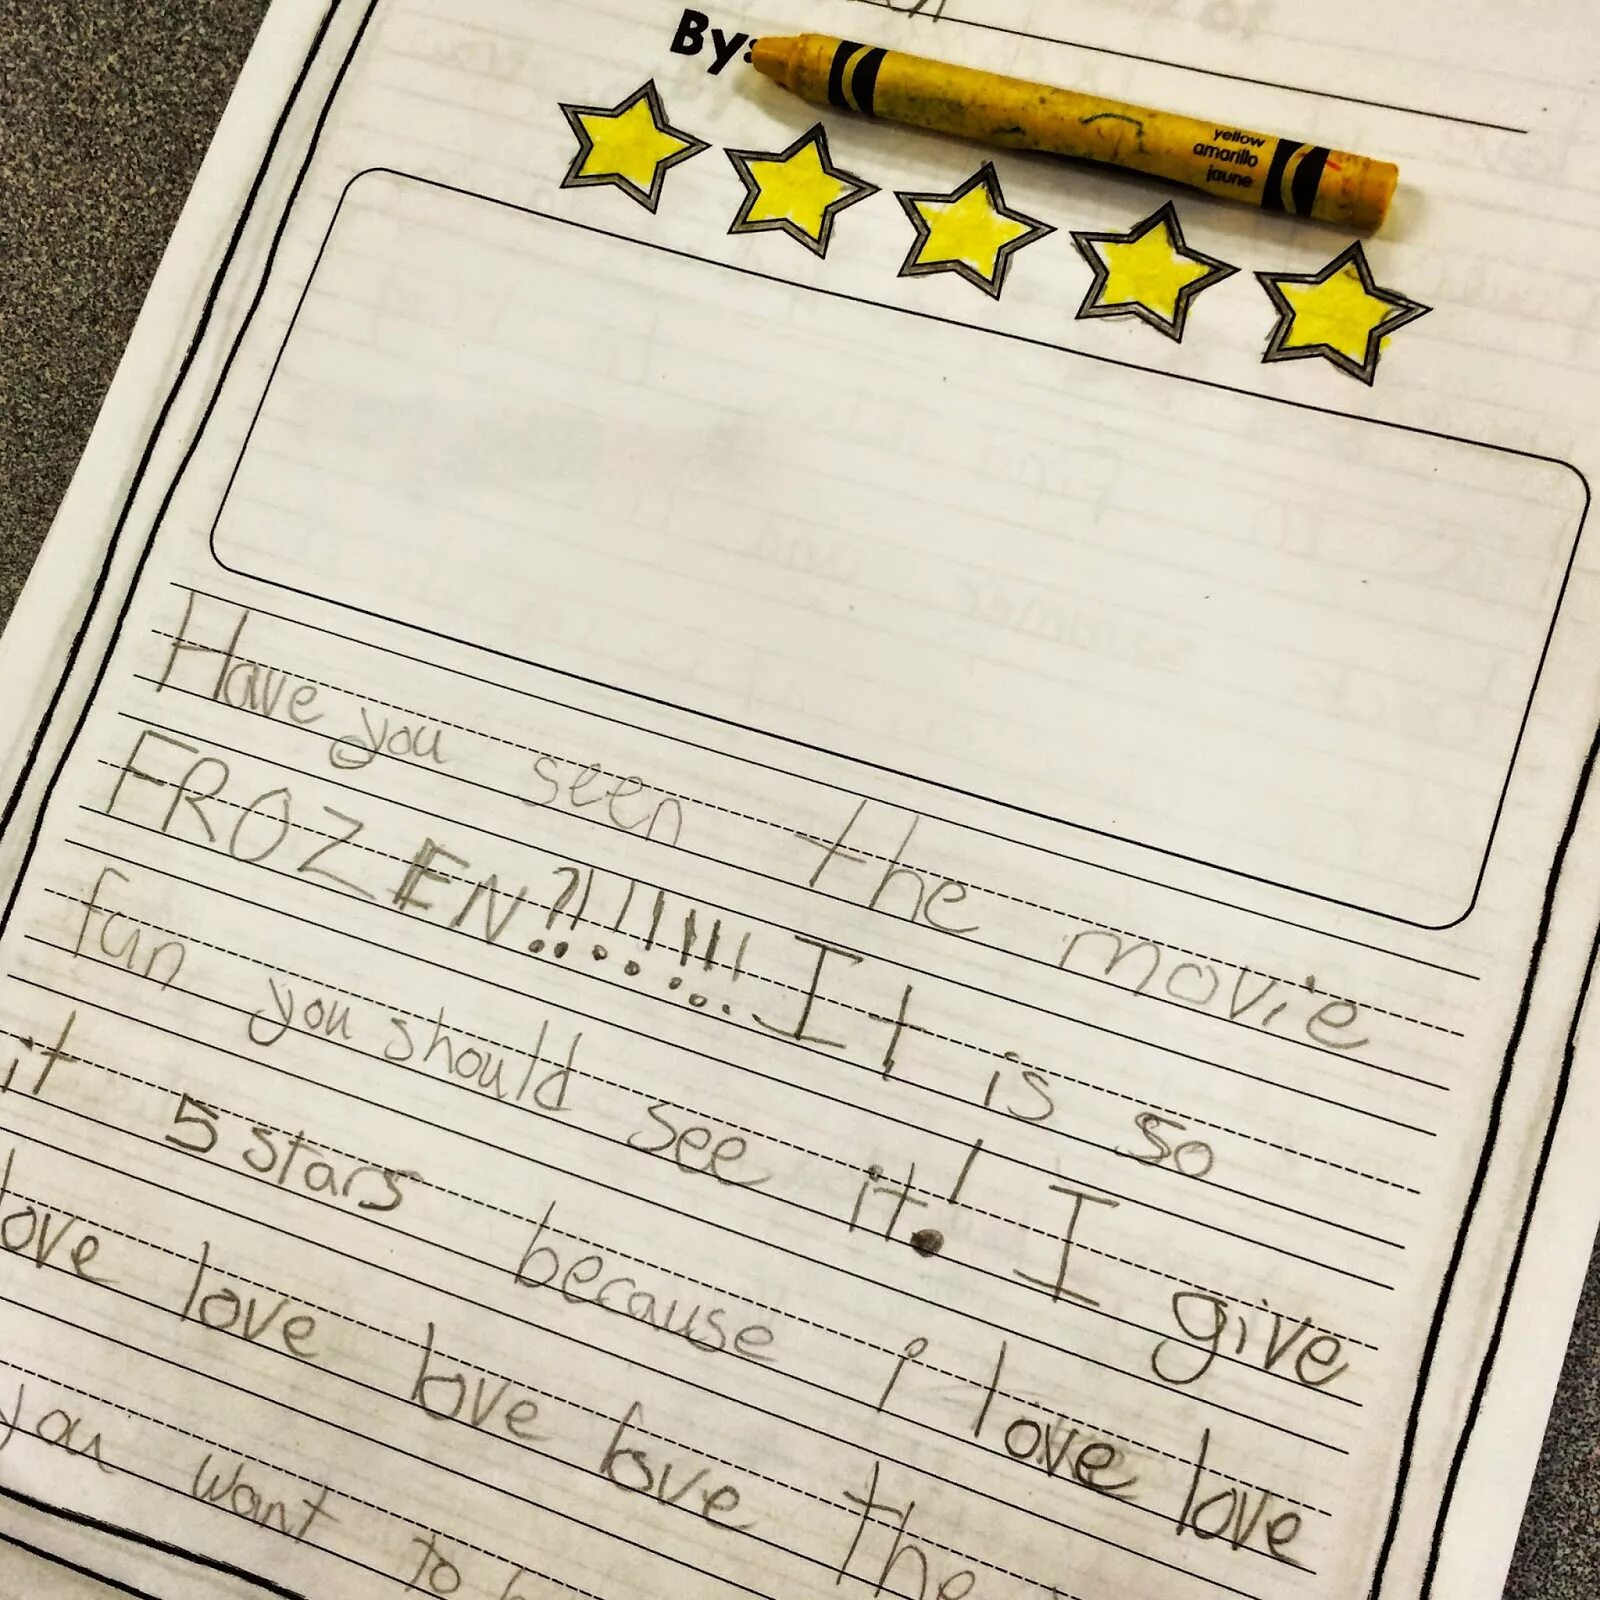 By:
yellow
amarillo
jaune
Have you seen the movie
FROZEN?!!!!!!! It is so
fun you should see it! I give
it 5 stars because i love love
love love love love the
you want to